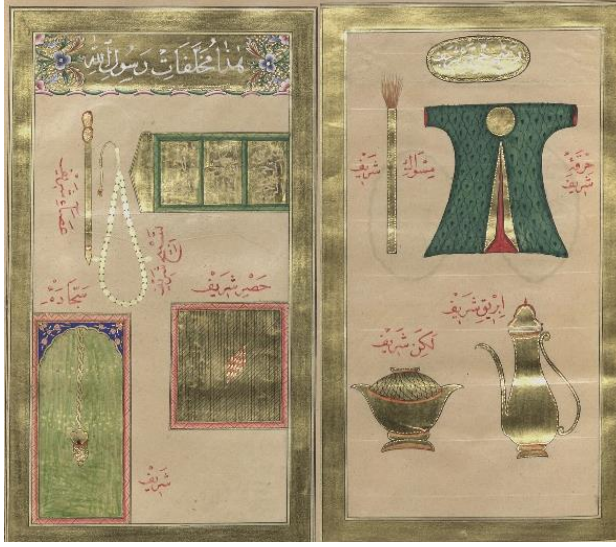 هذا مخلفات رسول الله
عصاء شريف
تسبيح شريف
سجاده
حصر شريف
شريف
مسواك شريف
خرقۀ شريف
ابريق شريف
لكن شريف